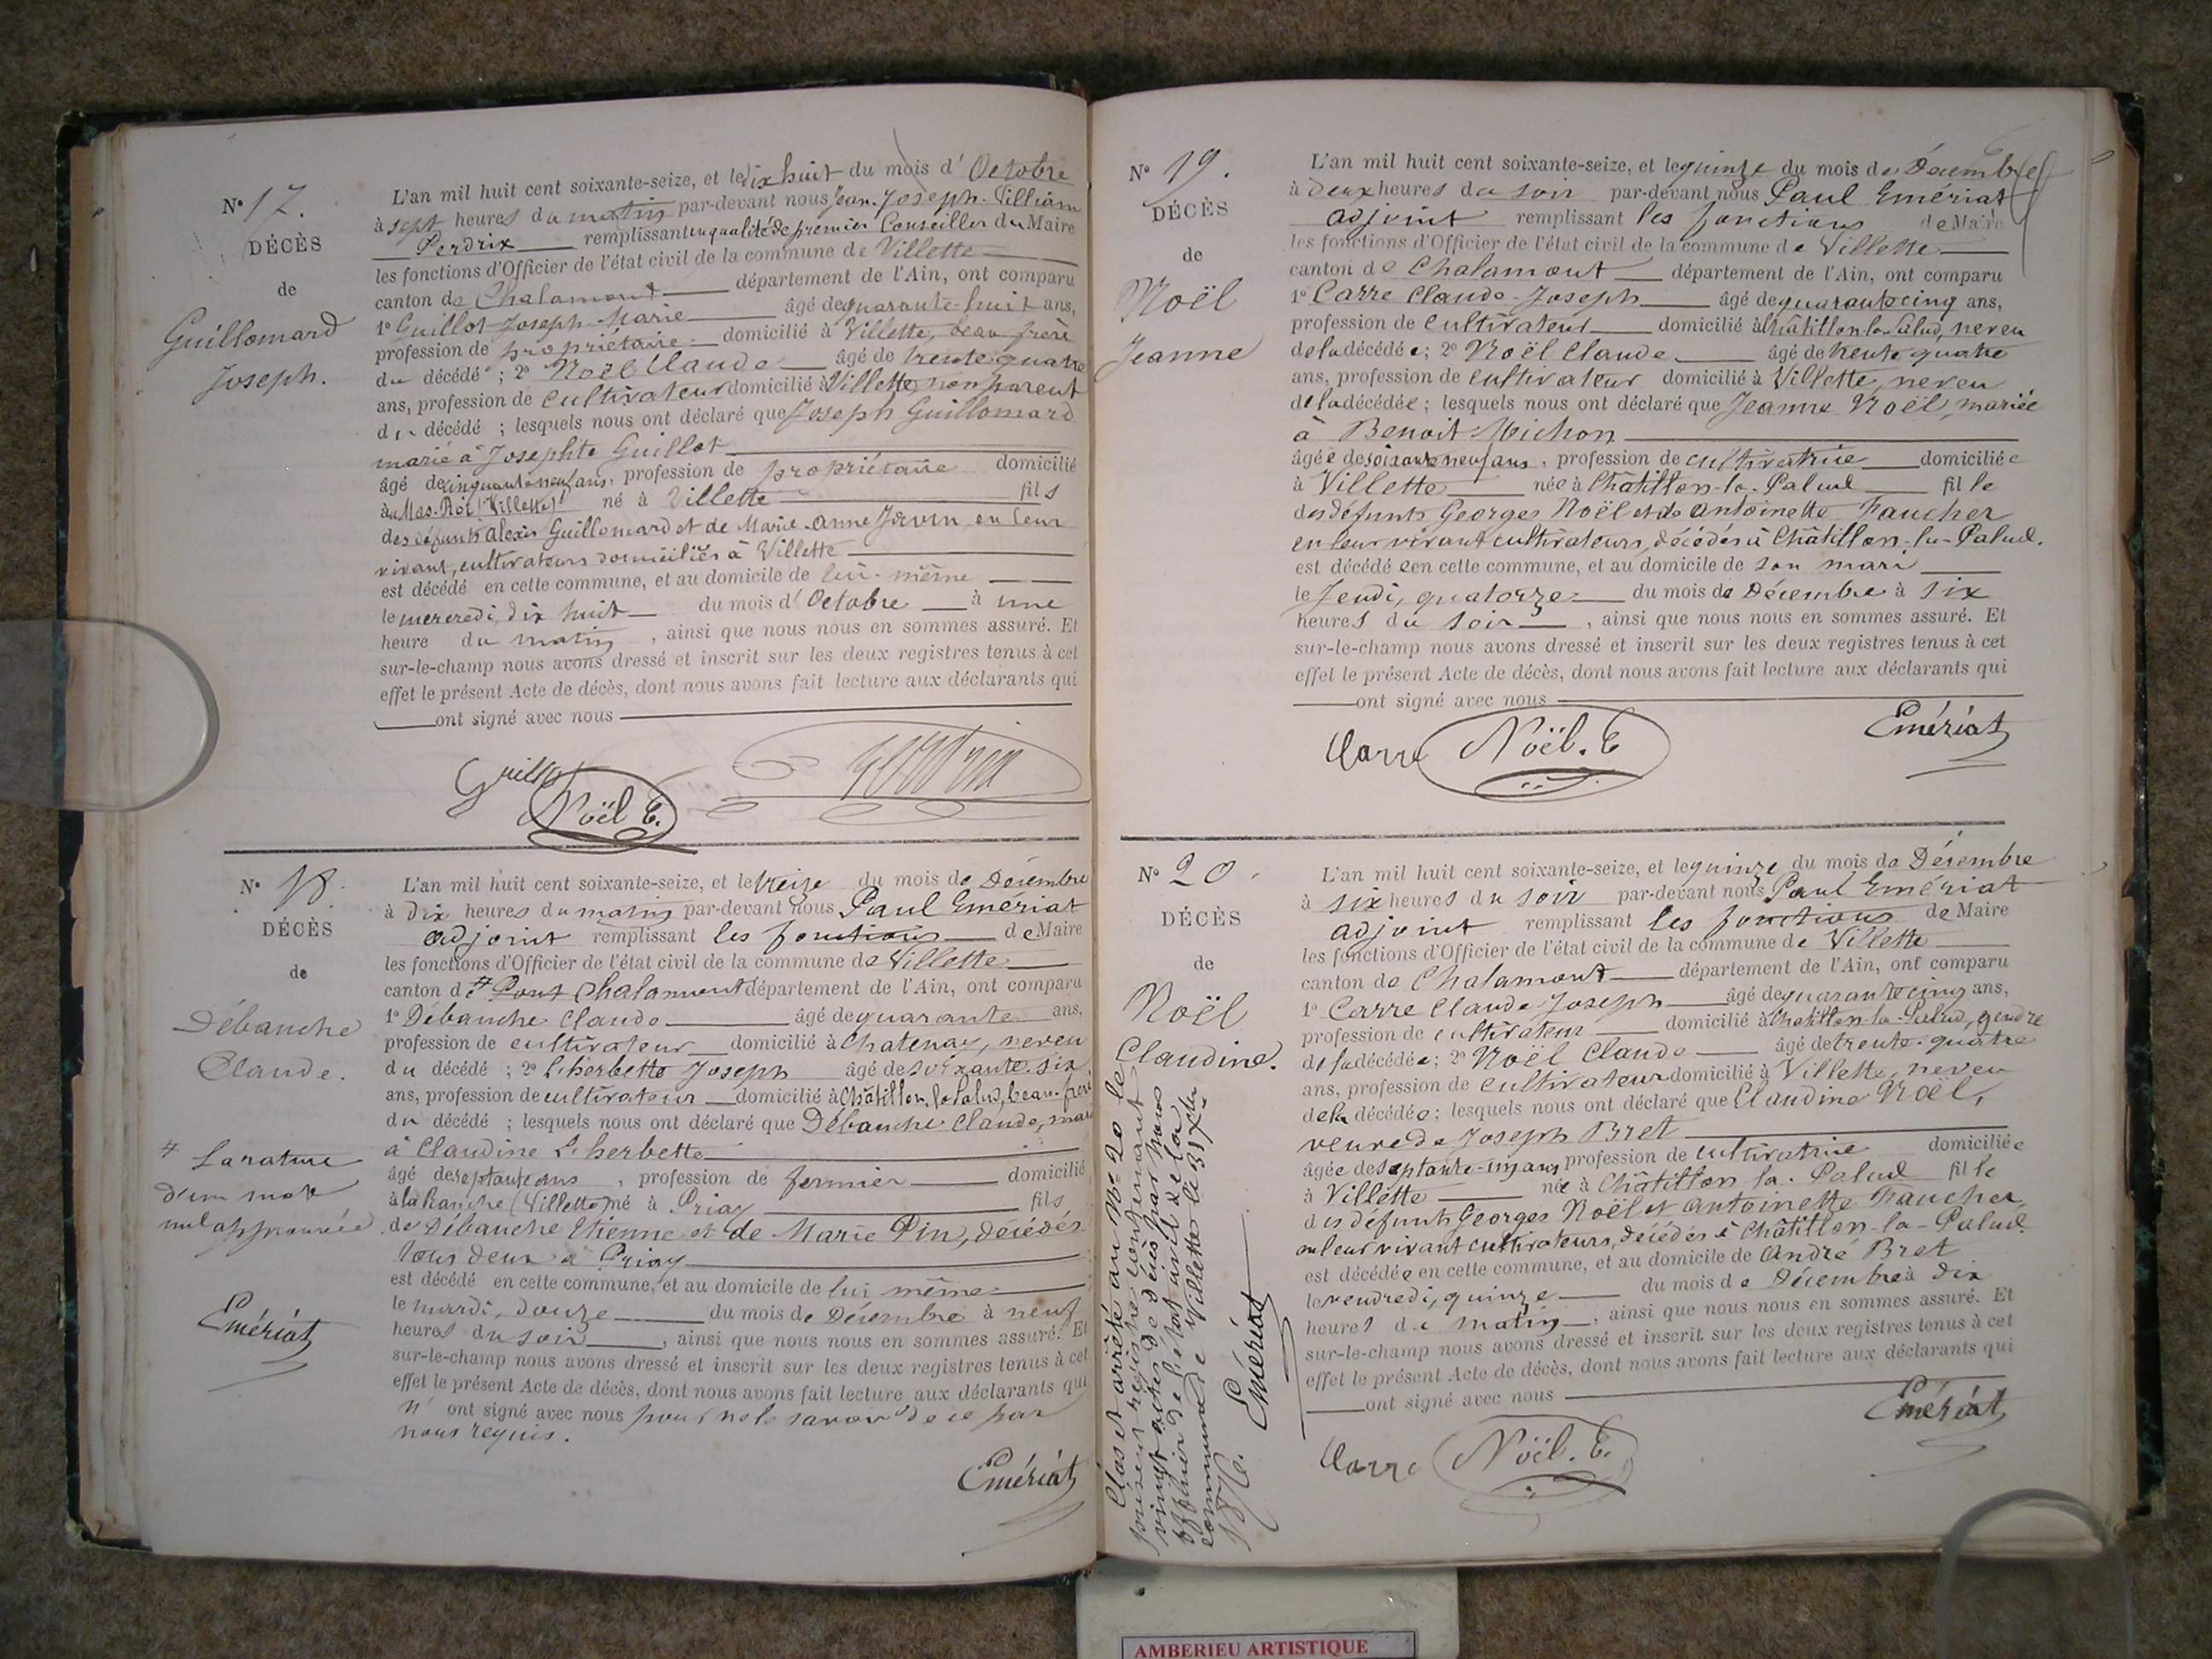 N° 17.
DÉCÈS
de
Guillomard
Joseph.
L'an mil huit cent soixante-seize, et le dix huit du mois d'Octobre
à sept heures du matin par-devant nous Jean-Joseph-Villiam
Perdrix remplissant en qualité de premier Conseiller du Maire
les fonctions d'Officier de l'état civil de la commune de Villette
canton de Chalamont département de l'Ain, ont comparu
1° Guillot Joseph-Marie âgé de quarante-huit ans,
profession de propriétaire domicilié à Villette, beau frère
du décédé ; 2° Noël Claude âgé de trente quatre
ans, profession de cultivateur domicilié à Villette, non parent
du décédé ; lesquels nous ont déclaré que Joseph Guillomard
marié à Josephte Guillot
âgé de cinquante neuf ans, profession de propriétaire domicilié
au Mas-Roi (Villette) né à Villette fils
des défunts Alexis Guillomard et de Marie-Anne en leur
vivant, cultivateurs domiciliés à Villette
est décédé en cette commune, et au domicile de lui-même
le mercredi, dix huit du mois d'Octobre à une
heure du matin, ainsi que nous nous en sommes assuré. Et
sur-le-champ nous avons dressé et inscrit sur les deux registres tenus à cet
effet le présent Acte de décès, dont nous avons fait lecture aux déclarants qui
ont signé avec nous
Guillot
Noël C.
Perdrix
N° 18.
DÉCÈS
de
Débanche
Claude.
# La rature
d'un mot
nul approuvée
Emériat
L'an mil huit cent soixante-seize, et le treize du mois de Décembre
à dix heures du matin par-devant nous Paul Emériat
adjoint remplissant les fonctions de Maire
les fonctions d'Officier de l'état civil de la commune de Villette
canton de # Pont Chalamont département de l'Ain, ont comparu
1° Débanche Claude âgé de quarante ans,
profession de cultivateur domicilié à Chatenay, neveu
du décédé ; 2° L'herbette Joseph âgé de soixante-six
ans, profession de cultivateur domicilié à Châtillon-la-Palud, beau-frère
du décédé ; lesquels nous ont déclaré que Débanche Claude, marié
à Claudine L'herbette
âgé de septante ans, profession de fermier domicilié
à la Ranche (Villette) né à Priay fils
de Débanche Etienne et de Marie Pin, décédés
tous deux à Priay
est décédé en cette commune, et au domicile de lui même
le mardi, douze du mois de Décembre à neuf
heures du soir, ainsi que nous nous en sommes assuré. Et
sur-le-champ nous avons dressé et inscrit sur les deux registres tenus à cet
effet le présent Acte de décès, dont nous avons fait lecture aux déclarants qui
n'ont signé avec nous pour ne le savoir de ce par
nous requis.
Emériat
N° 19.
DÉCÈS
de
Noël
Jeanne
L'an mil huit cent soixante-seize, et le quinze du mois de Décembre
à deux heures du soir par-devant nous Paul Emériat
adjoint remplissant les fonctions de Maire
les fonctions d'Officier de l'état civil de la commune de Villette
canton de Chalamont département de l'Ain, ont comparu
1° Carre Claude-Joseph âgé de quarante cinq ans,
profession de cultivateur domicilié à Châtillon-la-Palud, neveu
de la décédée ; 2° Noël Claude âgé de trente quatre
ans, profession de cultivateur domicilié à Villette, neveu
de la décédée ; lesquels nous ont déclaré que Jeanne Noël, mariée
à Benoit Michon
âgée de soixante neuf ans, profession de cultivatrice domiciliée
à Villette née à Châtillon-la-Palud fille
des défunts Georges Noël et de Antoinette Faucher
en leur vivant cultivateurs, décédés à Châtillon-la-Palud.
est décédée en cette commune, et au domicile de son mari
le Jeudi, quatorze du mois de Décembre à six
heures du soir, ainsi que nous nous en sommes assuré. Et
sur-le-champ nous avons dressé et inscrit sur les deux registres tenus à cet
effet le présent Acte de décès, dont nous avons fait lecture aux déclarants qui
ont signé avec nous
Carre
Noël. C
Emériat
N° 20.
DÉCÈS
de
Noël
Claudine.
L'an mil huit cent soixante-seize, et le quinze du mois de Décembre
à six heures du soir par-devant nous Paul Emériat
adjoint remplissant les fonctions de Maire
les fonctions d'Officier de l'état civil de la commune de Villette
canton de Chalamont département de l'Ain, ont comparu
1° Carre Claude Joseph âgé de quarante cinq ans,
profession de cultivateur domicilié à Châtillon-la-Palud, gendre
de la décédée ; 2° Noël Claude âgé de trente-quatre
ans, profession de cultivateur domicilié à Villette, neveu
de la décédée ; lesquels nous ont déclaré que Claudine Noël,
veuve de Joseph Bret
âgée de septante-un ans, profession de cultivatrice domiciliée
à Villette née à Châtillon-la-Palud fille
des défunts Georges Noël et Antoinette Faucher,
en leur vivant cultivateurs, décédés à Châtillon-la-Palud
est décédée en cette commune, et au domicile de André Bret
le vendredi, quinze du mois de Décembre à dix
heures du matin, ainsi que nous nous en sommes assuré. Et
sur-le-champ nous avons dressé et inscrit sur les deux registres tenus à cet
effet le présent Acte de décès, dont nous avons fait lecture aux déclarants qui
ont signé avec nous
Carre
Noël. C.
Emériat
Clos et arrêté au N° 20 le
présent registre contenant
vingt actes de décès par nous
officier de l'état civil de la
commune de Villette le 31 Xbre
1876.
Emériat
AMBERIEU ARTISTIQUE